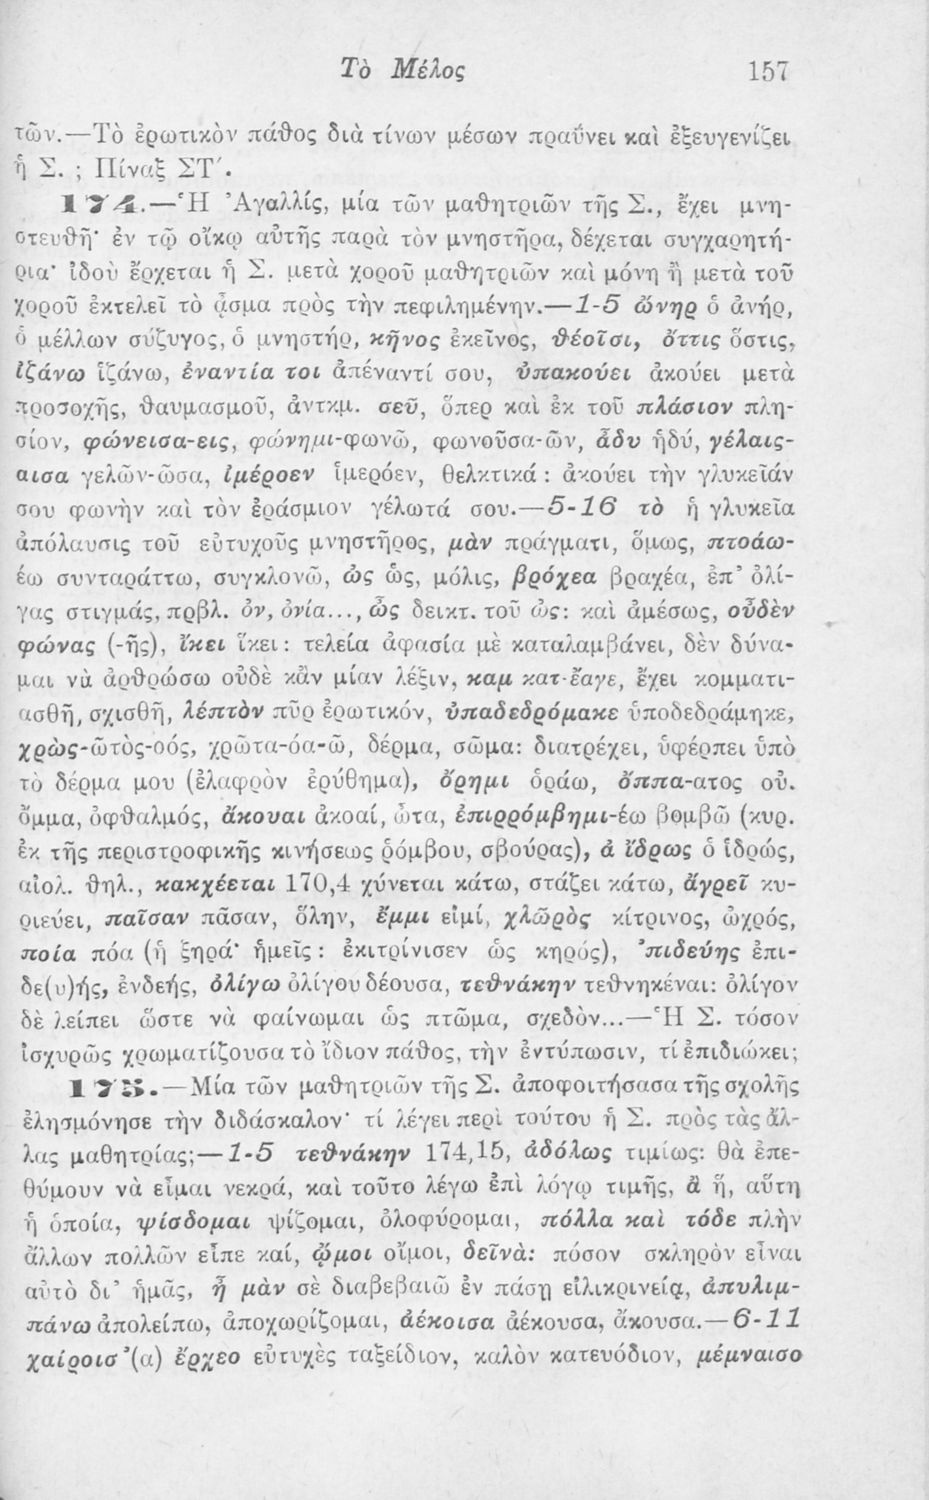 Τὸ Μέλος 157
τῶν.—Τὸ ἐρωτικὸν πάθος διὰ τίνων μέσων πραΰνει καὶ ἐξευγενίζει
ἡ Σ. ; Πίναξ ΣΤ΄.
174.—Ἡ Ἀγαλλίς, μία τῶν μαθητριῶν τῆς Σ., ἔχει μνη-
στευθῆ· ἐν τῷ οἴκῳ αὐτῆς παρὰ τὸν μνηστῆρα, δέχεται συγχαρητή-
ρια· ἰδοὺ ἔρχεται ἡ Σ. μετὰ χοροῦ μαθητριῶν καὶ μόνη ἢ μετὰ τοῦ
χοροῦ ἐκτελεῖ τὸ ᾆσμα πρὸς τὴν πεφιλημένην.—1-5 ὤνηρ ὁ ἀνήρ,
ὁ μέλλων σύζυγος, ὁ μνηστήρ, κῆνος ἐκεῖνος, θέοῖσι, ὄττις ὅστις,
ἰζάνω ἱζάνω, ἐναντία τοι ἀπέναντί σου, ὐπακούει ἀκούει μετὰ
προσοχῆς, θαυμασμοῦ, ἀντκμ. σεῦ, ὅπερ καὶ ἐκ τοῦ πλάσιον πλη-
σίον, φώνεισα-εις, φώνημι-φωνῶ, φωνοῦσα-ῶν, ἆδυ ἡδύ, γέλαις-
αισα γελῶν-ῶσα, ἰμέροεν ἱμερόεν, θελκτικά : ἀκούει τὴν γλυκεῖάν
σου φωνὴν καὶ τὸν ἐράσμιον γέλωτά σου.—5-16 τὸ ἡ γλυκεῖα
ἀπόλαυσις τοῦ εὐτυχοῦς μνηστῆρος, μὰν πράγματι, ὅμως, πτοάω-
έω συνταράττω, συγκλονῶ, ὠς ὡς, μόλις, βρόχεα βραχέα, ἐπ' ὀλί-
γας στιγμάς, πρβλ. ὀν, ὀνία..., ὦς δεικτ. τοῦ ὡς: καὶ ἀμέσως, οὖδὲν
φώνας (-ῆς), ἴκει ἵκει : τελεία ἀφασία μὲ καταλαμβάνει, δὲν δύνα-
μαι νὰ ἀρθρώσω οὐδὲ κἂν μίαν λέξιν, καμ κατ-ἔαγε, ἔχει κομματι-
ασθῆ, σχισθῆ, λέπτὸν πῦρ ἐρωτικόν, ὐπαδεδρόμακε ὑποδεδράμηκε,
χρὼς-ῶτὸς-οός, χρῶτα-όα-ῶ, δέρμα, σῶμα: διατρέχει, ὑφέρπει ὑπὸ
τὸ δέρμα μου (ἐλαφρὸν ἐρύθημα), ὄρημι ὁράω, ὄππα-ατος οὐ.
ὄμμα, ὀφθαλμός, ἄκουαι ἀκοαί, ὦτα, ἐπιρρόμβημι-έω βομβῶ (κυρ.
ἐκ τῆς περιστροφικῆς κινήσεως ῥόμβου, σβούρας), ἀ ἴδρως ὁ ἱδρώς,
αἰολ. θηλ., κακχέεται 170,4 χύνεται κάτω, στάζει κάτω, ἄγρεῖ κυ-
ριεύει, παῖσαν πᾶσαν, ὅλην, ἔμμι εἰμί, χλῶρὸς κίτρινος, ὠχρός,
ποία πόα (ἡ ξηρά· ἡμεῖς : ἐκιτρίνισεν ὡς κηρός), 'πιδεύης ἐπι-
δε(υ)ής, ἐνδεής, ὀλίγω ὀλίγου δέουσα, τεθνάκην τεθνηκέναι: ὀλίγον
δὲ λείπει ὥστε νὰ φαίνωμαι ὡς πτῶμα, σχεδὸν...—Ἡ Σ. τόσον
ἰσχυρῶς χρωματίζουσα τὸ ἴδιον πάθος, τὴν ἐντύπωσιν, τί ἐπιδιώκει;
175.—Μία τῶν μαθητριῶν τῆς Σ. ἀποφοιτήσασα τῆς σχολῆς
ἐλησμόνησε τὴν διδάσκαλον· τί λέγει περὶ τούτου ἡ Σ. πρὸς τὰς ἄλ-
λας μαθητρίας;—1-5 τεθνάκην 174,15, ἀδόλως τιμίως: θὰ ἐπε-
θύμουν νὰ εἶμαι νεκρά, καὶ τοῦτο λέγω ἐπὶ λόγῳ τιμῆς, ἄ ἥ, αὕτη
ἡ ὁποία, ψίσδομαι ψίζομαι, ὀλοφύρομαι, πόλλα καὶ τόδε πλὴν
ἄλλων πολλῶν εἶπε καί, ᾤμοι οἴμοι, δεῖνὰ: πόσον σκληρὸν εἶναι
αὐτὸ δι' ἡμᾶς, ἦ μὰν σὲ διαβεβαιῶ ἐν πάσῃ εἰλικρινείᾳ, ἀπυλιμ-
πάνω ἀπολείπω, ἀποχωρίζομαι, ἀέκοισα ἀέκουσα, ἄκουσα.—6-11
χαίροισ'(α) ἔρχεο εὐτυχὲς ταξείδιον, καλὸν κατευόδιον, μέμναισο